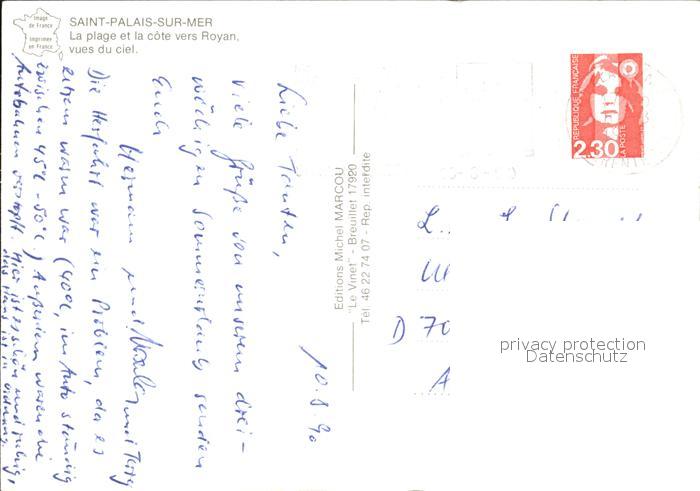 Image
de France
Imprimé
en France
SAINT-PALAIS-SUR-MER
La plage et la côte vers Royan,
vues du ciel.
10.8.90
Liebe Tanten,
viele Grüße von unserem drei-
wöchigen Sommerurlaub senden
Euch
Hermann und und
Die Herfahrt war ein Problem, da es
extrem warm war (40°C, im Auto ständig
zwischen 45°C - 50°C.) Außerdem waren die
Autobahnen verstopft. Hier ist es schön und ruhig,
das Haus ist in Ordnung.
Editions Michel MARCOU
"Le Vinet" - Breuillet 17920
Tél. 46 22 74 07 - Rep. interdite
RÉPUBLIQUE FRANÇAISE
2,30
LA POSTE
L
D 70
A
privacy protection
Datenschutz